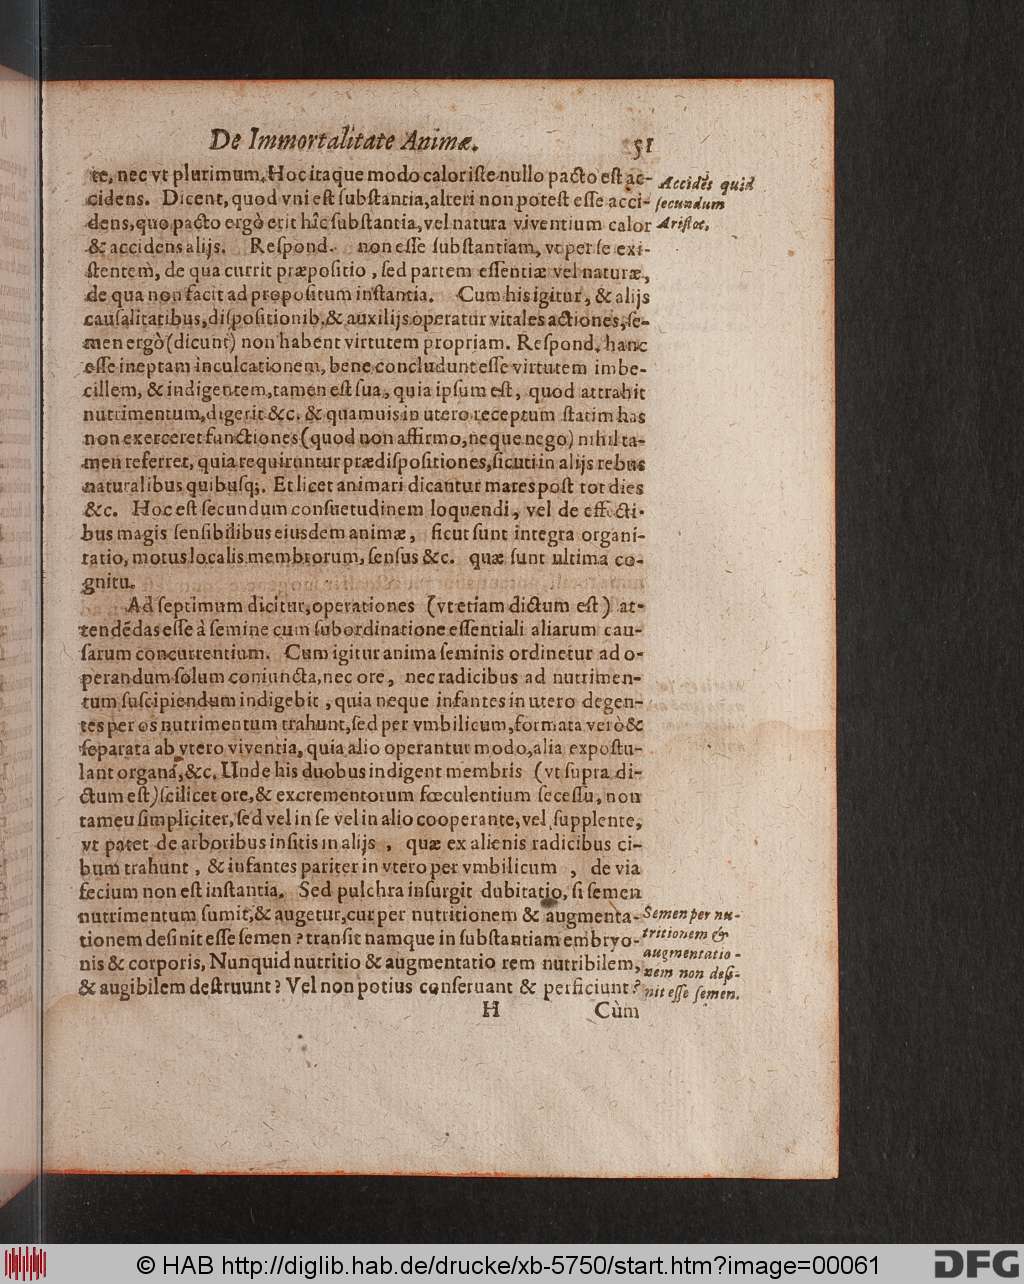 De Immortalitate Animæ. 51
te, nec vt plurimum. Hoc itaque modo calor iste nullo pacto est ac-
cidens. Dicent, quod vni est substantia, alteri non potest esse acci-
dens, quo pacto ergò erit hîc substantia, vel natura viventium calor
& accidens alijs. Respond. non esse substantiam, vt per se exi-
stentem, de qua currit præpositio, sed partem essentiæ vel naturæ,
de qua non facit ad propositum instantia. Cum his igitur, & alijs
causalitatibus, dispositionib, & auxilijs operatur vitales actiones, se-
men ergò (dicunt) non habent virtutem propriam. Respond. hanc
esse ineptam inculcationem, bene concludunt esse virtutem imbe-
cillem, & indigentem, tamen est sua, quia ipsum est, quod attrahit
nutrimentum, digerit &c. & quamuis in utero receptum statim has
non exerceret functiones (quod non affirmo, neque nego) nihil ta-
men referret, quia requiruntur prædispositiones, sicuti in alijs rebus
naturalibus quibusq;. Et licet animari dicantur mares post tot dies
&c. Hoc est secundum consuetudinem loquendi, vel de effecti-
bus magis sensibilibus eiusdem animæ, sicut sunt integra organi-
ratio, motus localis membrorum, sensus &c. quæ sunt ultima co-
gnitu.
Ad septimum dicitur, operationes (vt etiam dictum est) at-
tendēdas esse à semine cum subordinatione essentiali aliarum cau-
sarum concurrentium. Cum igitur anima seminis ordinetur ad o-
perandum solum coniuncta, nec ore, nec radicibus ad nutrimen-
tum suscipiendum indigebit, quia neque infantes in utero degen-
tes per os nutrimentum trahunt, sed per vmbilicum, formata verò &
separata ab vtero viventia, quia alio operantur modo, alia expostu-
lant organa, &c. Unde his duobus indigent membris (vt supra di-
ctum est) scilicet ore, & excrementorum fœculentium secessu, non
tameu simpliciter, sed vel in se vel in alio cooperante, vel supplente,
vt patet de arboribus insitis in alijs, quæ ex alienis radicibus ci-
bum trahunt, & infantes pariter in vtero per vmbilicum, de via
fecium non est instantia. Sed pulchra insurgit dubitatio, si semen
nutrimentum sumit, & augetur, cur per nutritionem & augmenta-
tionem definit esse semen? transit namque in substantiam embryo-
nis & corporis, Nunquid nutritio & augmentatio rem nutribilem,
& augibilem destruunt? Vel non potius conseruant & perficiunt?
H Cùm
Accidēs quid
secundum
Aristot.
Semen per nu-
tritionem &
augmentatio-
nem non desi-
nit esse semen.
© HAB http://diglib.hab.de/drucke/xb-5750/start.htm?image=00061
DFG